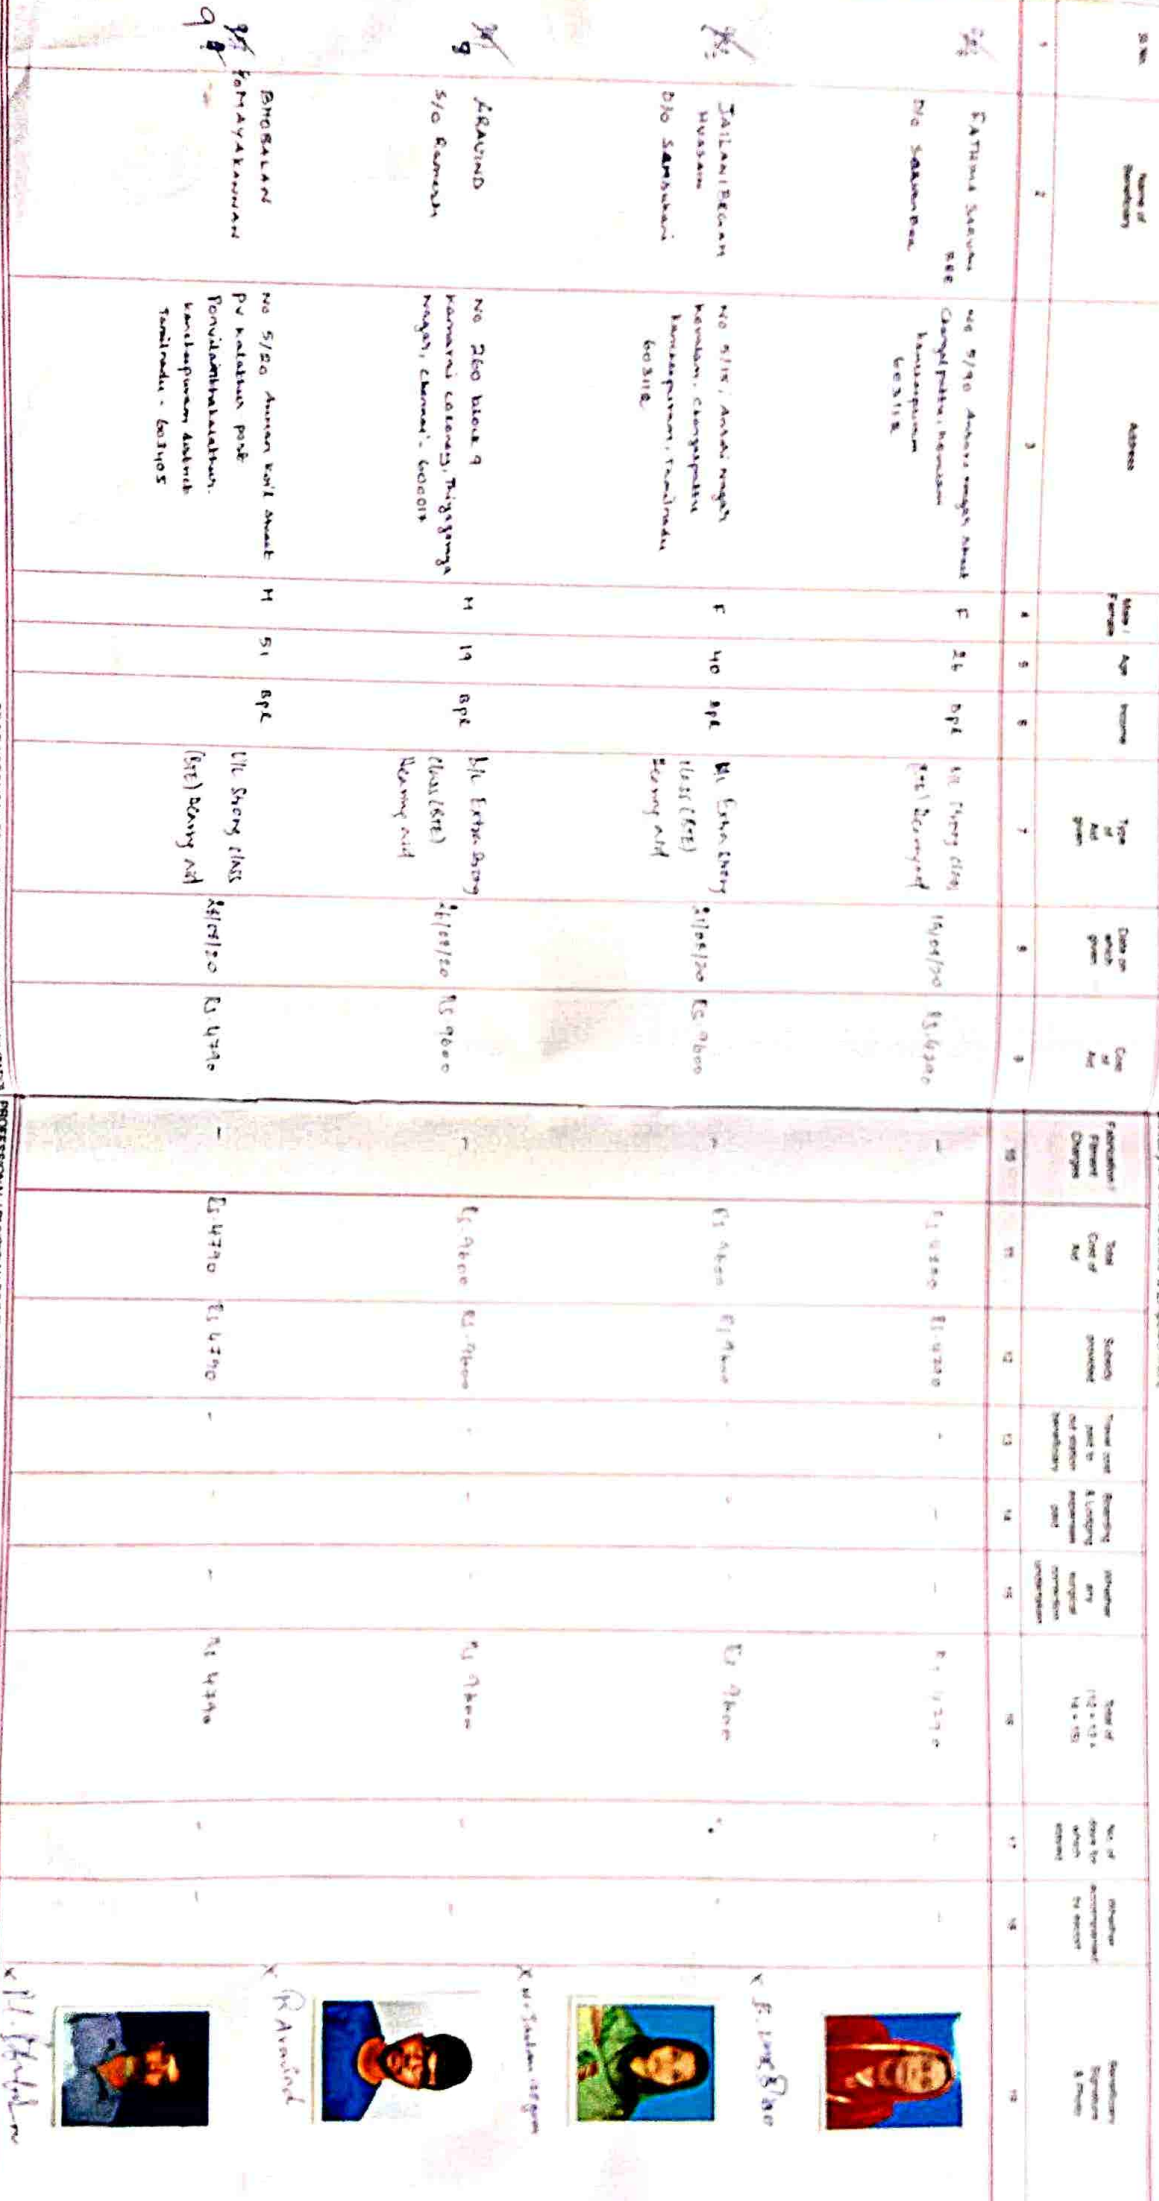 Sl. No.
Name of
Beneficiary
Address
Male /
Female
Age
Income
Type
of
Aid
given
Date on
which
given
Cost
of
Aid
Fabrication /
Fitment
Charges
Total
Cost of
Aid
Subsidy
provided
Travel cost
paid to
out station
beneficiary
Boarding
& Lodging
expenses
paid
Whether
any
surgical
correction
undertaken
Total of
(12 + 13 +
14 + 15)
No. of
days for
which
stayed
Whether
accompanied
by escort
Beneficiary
Signature
& Photo
1 2 3 4 5 6 7 8 9 10 11 12 13 14 15 16 17 18 19
FATHIMA
BEE
D/O
No 5/90 Street
603112
F 26 BPL
Strong class
(BTE) Hearing aid
Rs.4790
- Rs.4790 Rs.4790 - - - Rs.4790 - -
JAILANI BEGAM
HUSSAIN
D/O Samsuhani
No 5/15, Annai nagar
Kovalam, Chengalpattu
Kancheepuram, Tamilnadu
603112
F 40 BPL
B/L Extra Strong
class (BTE)
Hearing Aid
21/08/20 Rs.9600
- Rs.9600 Rs.9600 - - - Rs.9600 - -
8
ARAVIND
S/O Ramesh
No 260 block 9
Kamaraj Coloney, Thiyagaraya
Nagar, Chennai - 600017
M 19 BPL
B/L Extra Strong
class (BTE)
Hearing Aid
26/08/20 Rs.9600
- Rs.9600 Rs.9600 - - - Rs.9600 - -
X R Aravind
9
BHOBALAN
S/o MAYAKANNAN
No 5/20 Amman Koil Street
PV Kalathur post
Ponvilainthakalathur.
Kancheepuram district
Tamilnadu - 603405
M 51 BPL
U/L Strong class
(BTE) Hearing Aid
Rs.4790
- Rs.4790 Rs.4790 - - - Rs.4790 - -